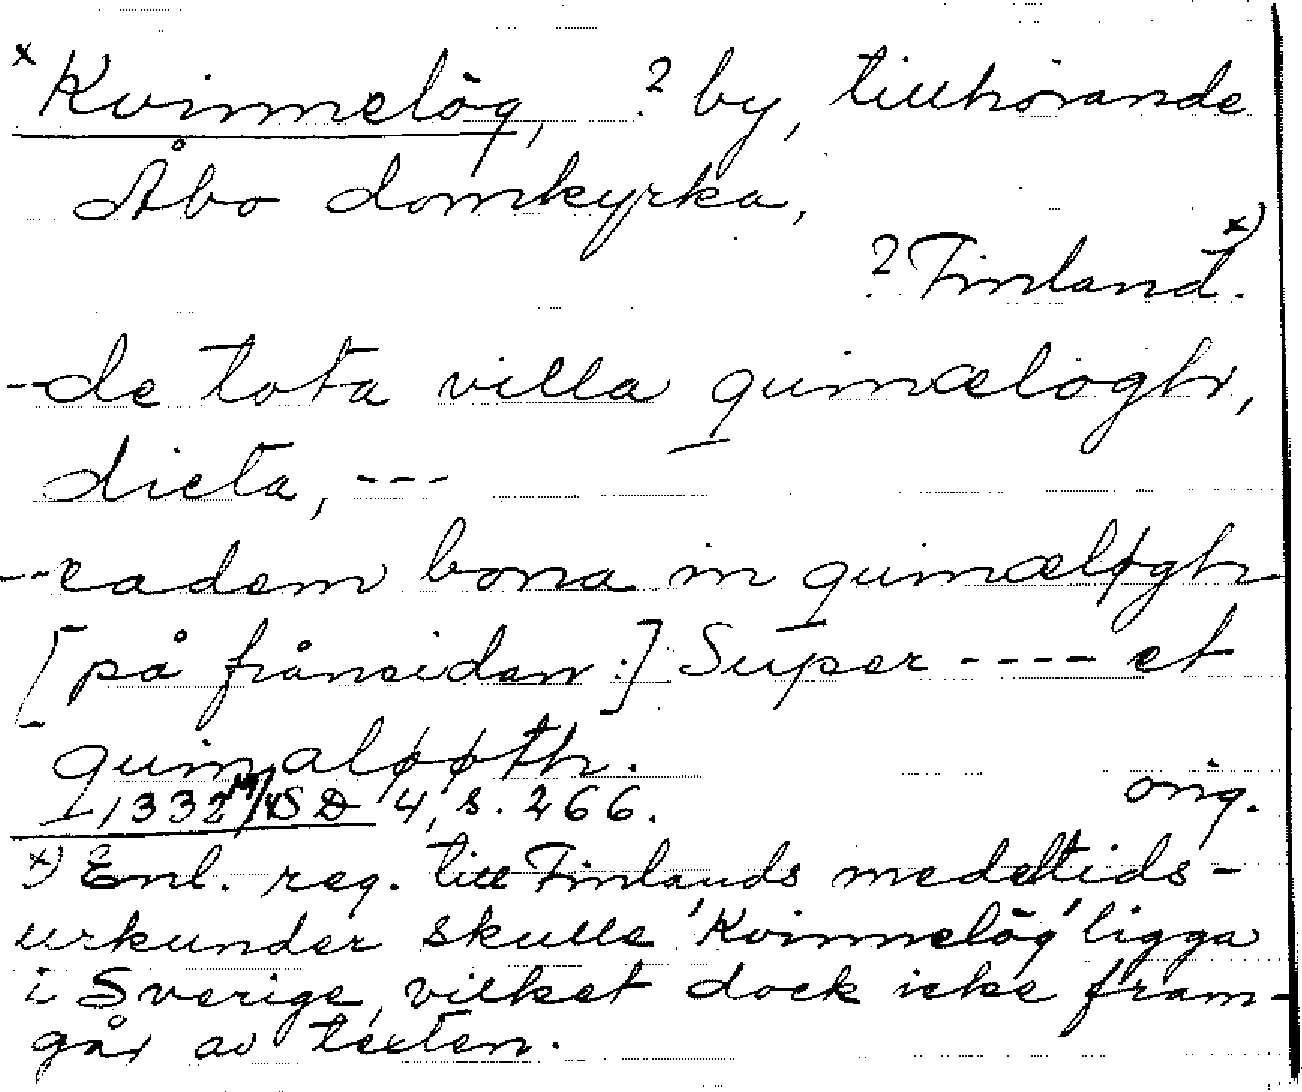 x Kvinnelög, ? by, tillhörande
Åbo domkyrka,
? Finland. x)
--de tota villa quinnæløgh,
dicta, ---
--eadem bona in quinæløgh
[på frånsidan:] Super ---- et
quinnaløøth.
1332 14/4 SD 4, s. 266. orig.
x) Enl. reg. till Finlands medeltids-
urkunder skulle 'Kvinnelög' ligga
i Sverige, vilket dock icke fram-
går av texten.